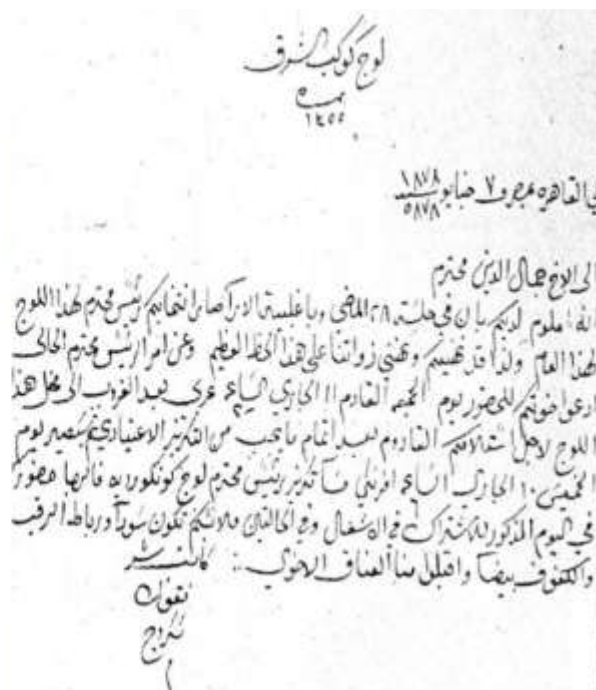 لوج كوكب الشرق
نمرة
١٣٥٥
في القاهره بمصر في ٧ ١٨٧٨
٥٨٧٨
الى الاخ جمال الدين محترم
انه معلوم لديكم بان في جلسة ٢٨ الماضي وباغلبية الاراء صار انتخابكم رئيس محترم لهذا اللوج
لهذا العام ولذا قد نهنيكم ونهني ذواتنا على هذا الحظ العظيم وعن امر الرئيس محترم الحالي
ادعو اخوتكم للحضور يوم الجمعه القادم ١١ الجاري الساعه ٢ عربي بعد الغروب الى محل هذا
اللوج لاجل استلامكم القادوم بعد اتمام ما يجب من التكريز الاعتيادي ثم سيصير يوم
الخميس ١٠ الجاري الساعه افرنكي مساء تكريز رئيس محترم لوج كونكورديه فالرجا حضوركم
في اليوم المذكور للاشتراك في الاشغال وفي الحالتين ملابسكم تكون سوداء ورباط الرقبه
والكفوف بيضاء واقبلوا منا العناق الاخوي
كاتب سر
نقولا
سكروج